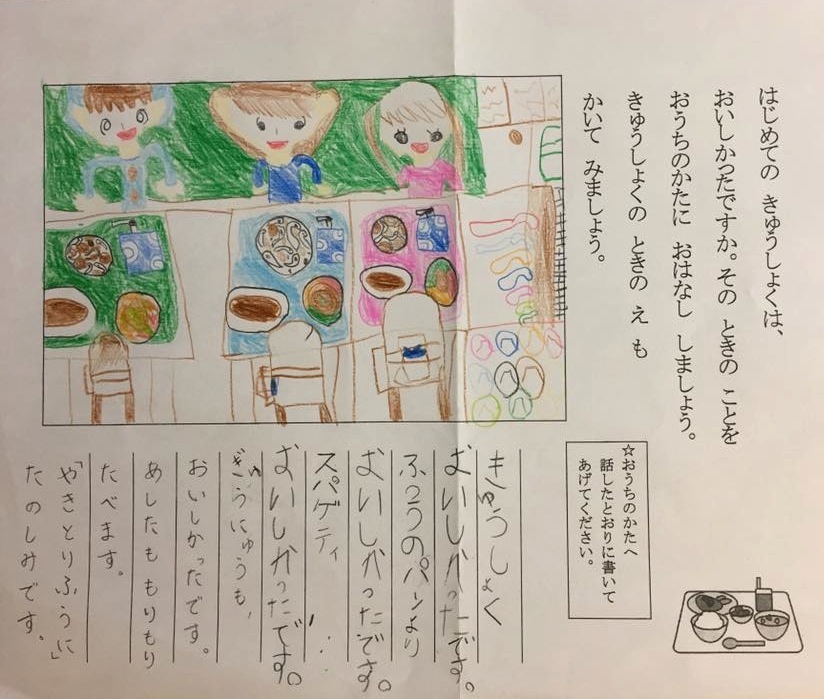 はじめての きゅうしょくは、
おいしかったですか。その ときの ことを
おうちのかたに おはなし しましょう。
きゅうしょくの ときの え も
かいて みましょう。
☆おうちのかたへ
話したとおりに書いて
あげてください。
きゅうしょく
おいしかったです。
ふつうのパンより
おいしかったです。
スパゲティ
おいしかったです。
ぎゅうにゅうも、
おいしかったです。
あしたも もりもり
たべます。
「やきとりふうに」
たのしみです。